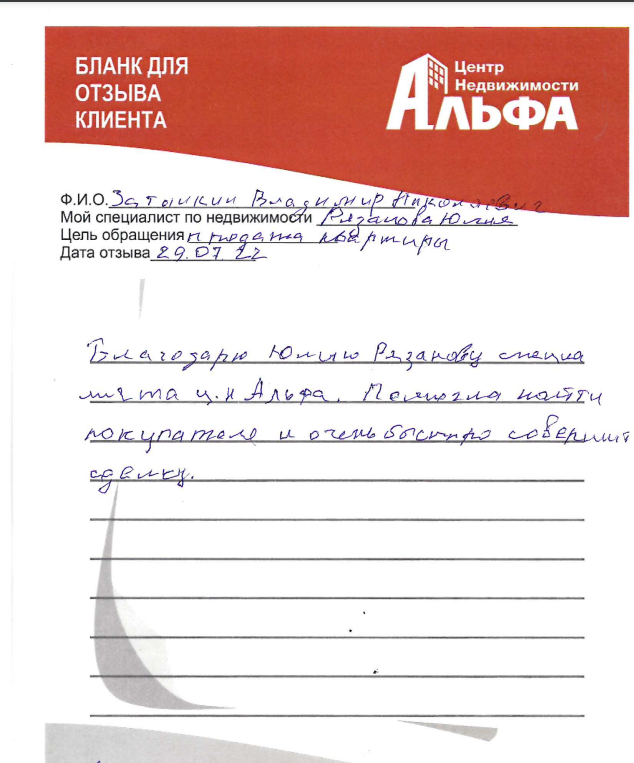 БЛАНК ДЛЯ
ОТЗЫВА
КЛИЕНТА
Центр
Недвижимости
АЛЬФА
Ф.И.О. Владимир Николаевич
Мой специалист по недвижимости Рязанова Юлия
Цель обращения продажа квартиры
Дата отзыва 29.07.22
Благодарю Юлию Рязанову специа
листа ц.н Альфа. Помогла найти
покупателя и очень быстро совершит
сделку.